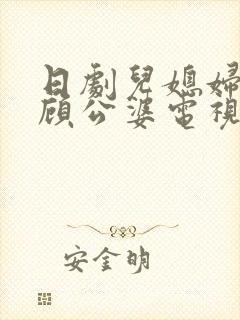 日劇兒媳婦
頋公婆電視
安金明